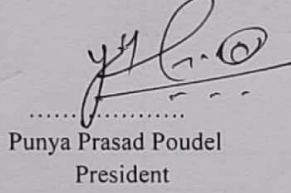 ....................
Punya Prasad Poudel
President